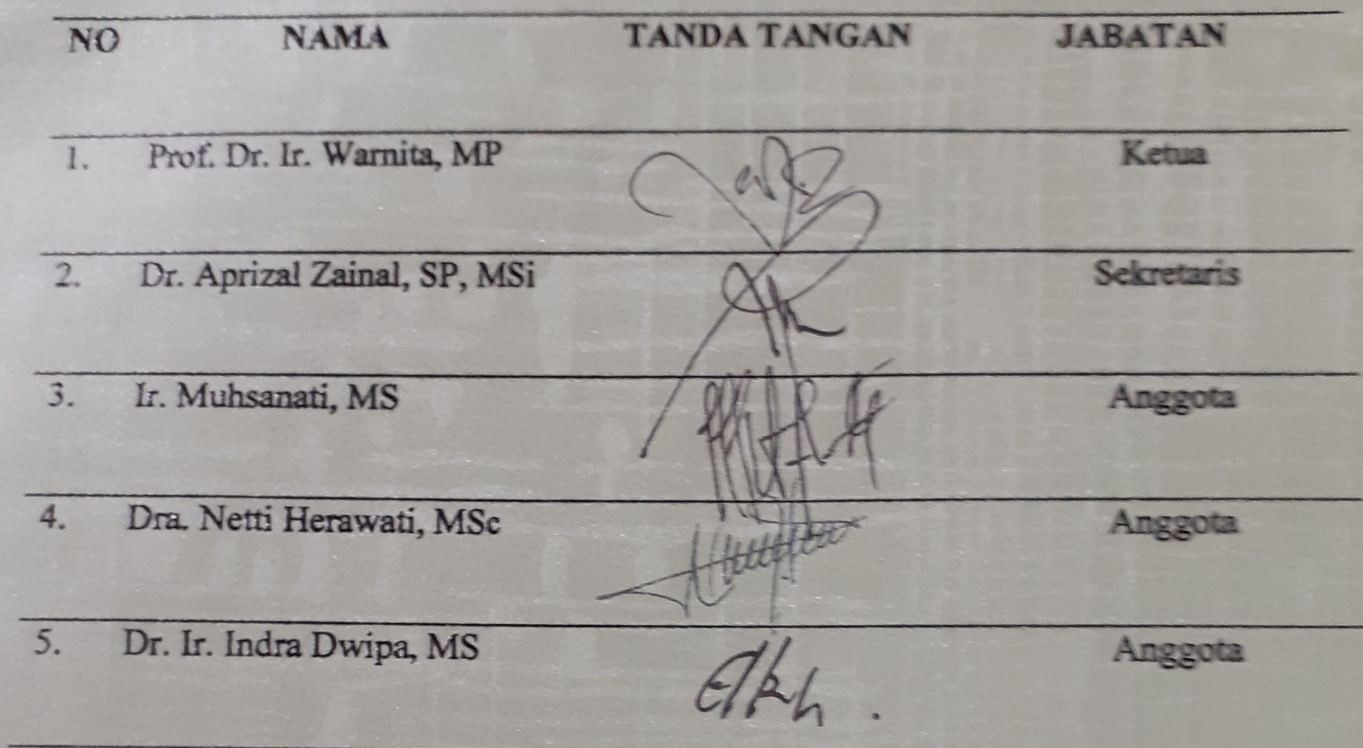 NO NAMA TANDA TANGAN JABATAN
1. Prof. Dr. Ir. Warnita, MP Ketua
2. Dr. Aprizal Zainal, SP, MSi Sekretaris
3. Ir. Muhsanati, MS Anggota
4. Dra. Netti Herawati, MSc Anggota
5. Dr. Ir. Indra Dwipa, MS Anggota